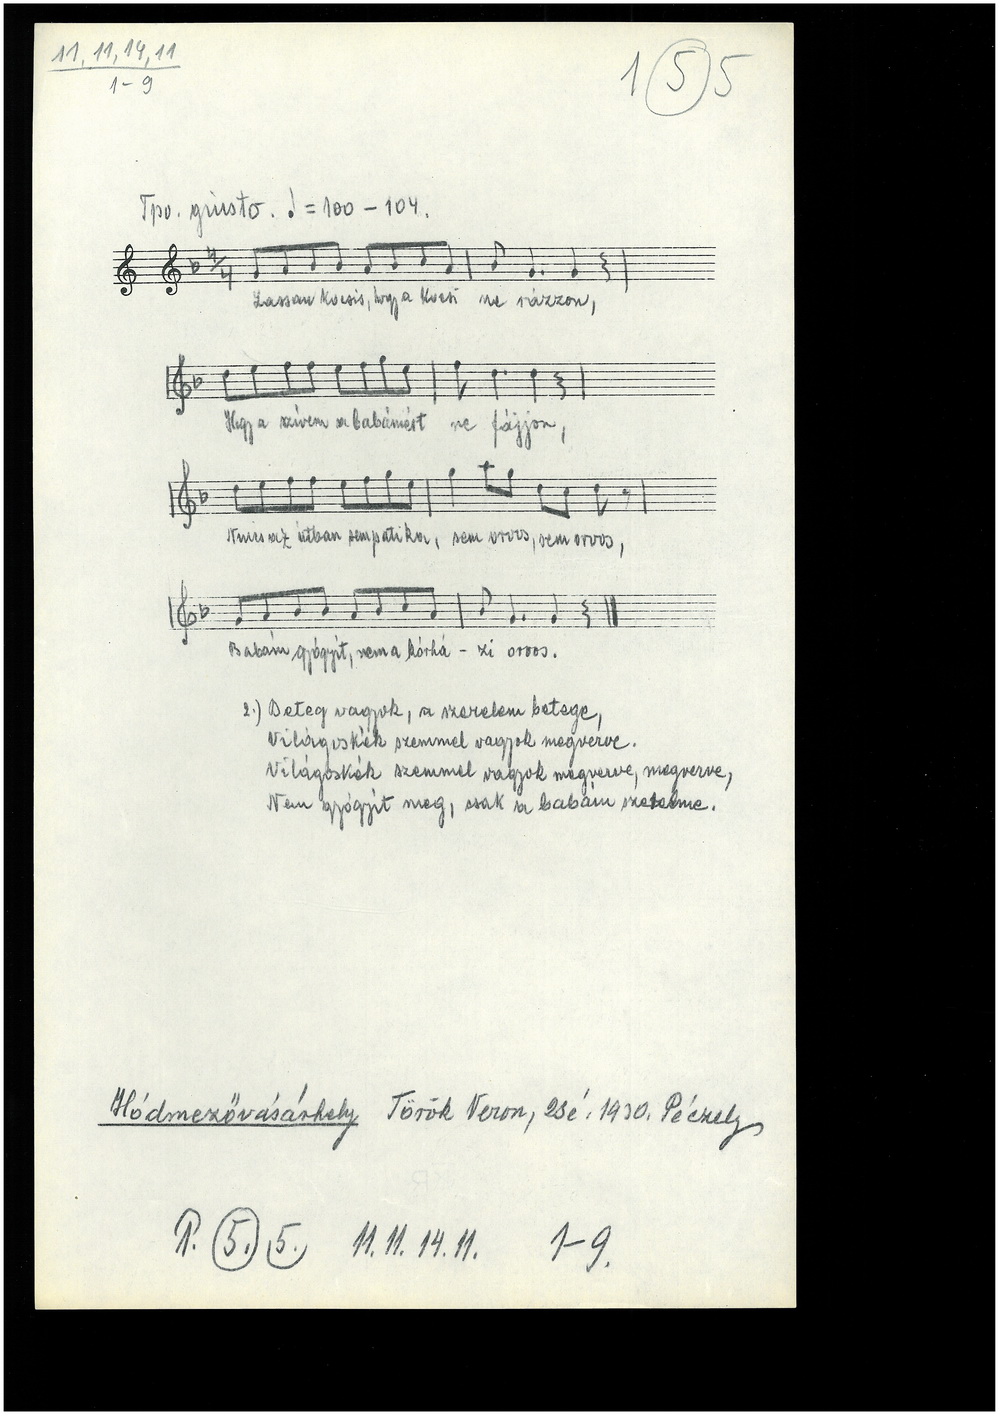 11, 11, 14, 11
1-9
1 5 5
Tpo. giusto. ♩ = 100 - 104.
4/4
Lassan kocsis, hogy a kocsi ne rázzon,
Hogy a szívem a babámért ne fájjon,
Nincs az útban sempatika, sem orvos, sem orvos,
Babám gyógyít, nem a kórhá - zi orvos.
2.) Beteg vagyok, a szerelem betege,
Világoskék szemmel vagyok megverve.
Világoskék szemmel vagyok megverve, megverve,
Nem gyógyít meg, csak a babám szerelme.
Hódmezővásárhely Török Veron, 28é. 1930. Péczely
1. 5. 5. 11. 11. 14. 11. 1-9.